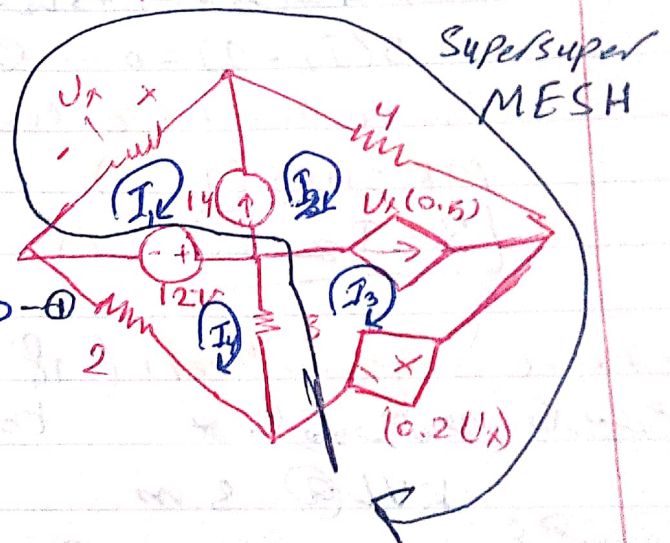 Supersuper
MESH
Ux x
-
4
I1
14
I2
Ux(0.5)
- +
12V
I3
2
I4
3
(0.2 Ux)